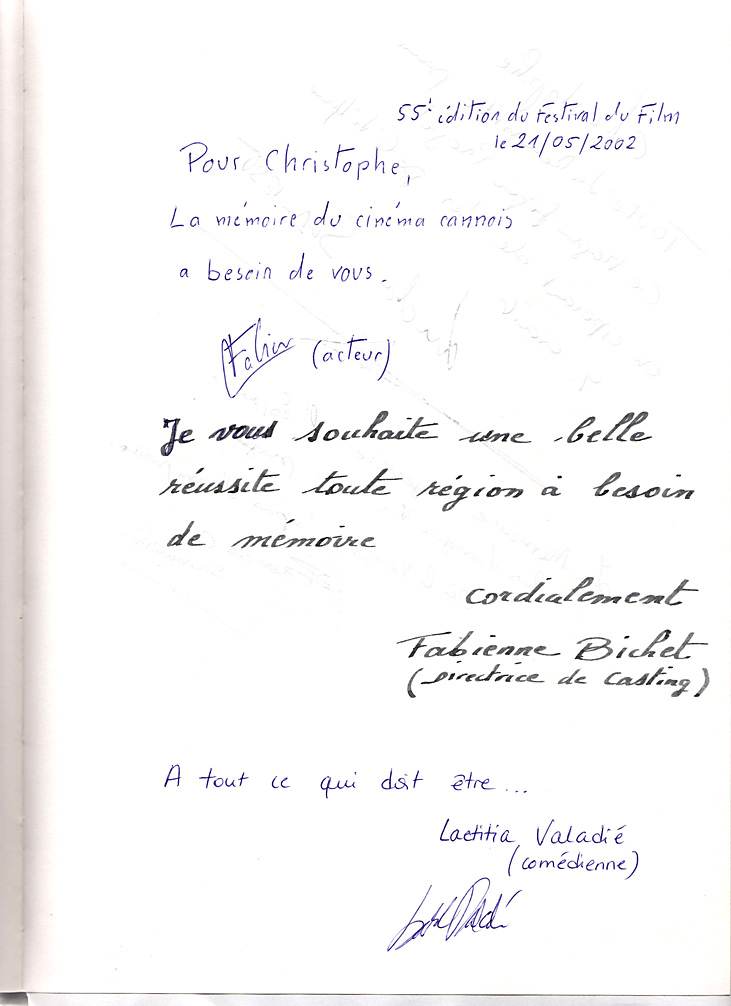 55è édition du Festival du Film
le 21/05/2002
Pour Christophe,
La mémoire du cinéma cannois
a besoin de vous.
Fabien (acteur)
Je vous souhaite une belle
réussite toute région à besoin
de mémoire
cordialement
Fabienne Bichet
(Directrice de Casting)
A tout ce qui doit être...
Laetitia Valadié
(comédienne)